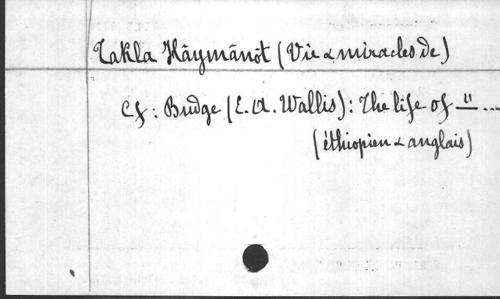 Takla Hāymānōt (Vie & miracles de)
Cf: Budge (E. A. Wallis): The life of " ...
(éthiopien & anglais)